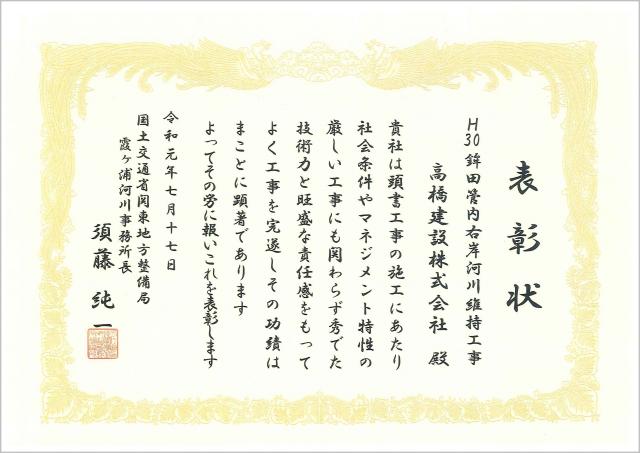 表彰状
H30鉾田管内右岸河川維持工事
高橋建設株式会社 殿
貴社は頭書工事の施工にあたり
社会条件やマネジメント特性の
厳しい工事にも関わらず秀でた
技術力と旺盛な責任感をもって
よく工事を完遂しその功績は
まことに顕著であります
よってその労に報いこれを表彰します
令和元年七月十七日
国土交通省関東地方整備局
霞ヶ浦河川事務所長
須藤 純一